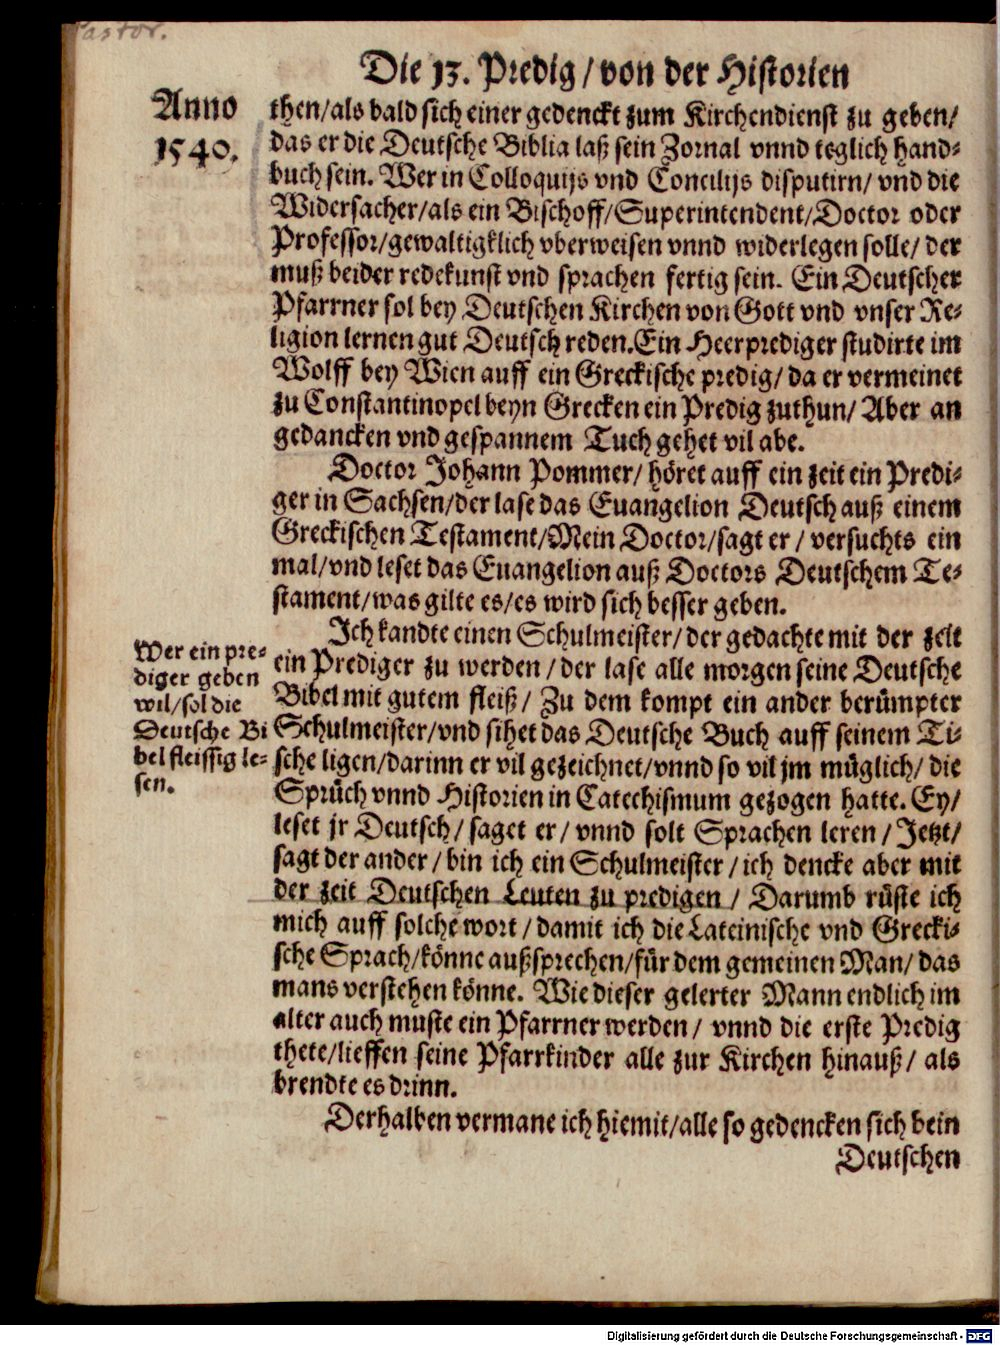 Pastor.
Die 13. Predig / von der Historien
Anno
1540.
then / als bald sich einer gedenckt zum Kirchendienst zu geben /
das er die Deutsche Biblia laß sein Zornal vnnd teglich hand-
buch sein. Wer in Colloquijs vnd Concilijs disputirn / vnd die
Widersacher / als ein Bischoff / Superintendent / Doctor oder
Professor / gewaltigklich vberweisen vnnd widerlegen solle / der
muß beider redekunst vnd sprachen fertig sein. Ein Deutscher
Pfarrner sol bey Deutschen Kirchen von Gott vnd vnser Re-
ligion lernen gut Deutsch reden. Ein Heerprediger studirte im
Wolff bey Wien auff ein Greckische predig / da er vermeinet
zu Constantinopel beyn Grecken ein Predig zuthun / Aber an
gedancken vnd gespannem Tuch gehet vil abe.
Doctor Johann Pommer / höret auff ein zeit ein Predi-
ger in Sachsen / der lase das Euangelion Deutsch auß einem
Greckischen Testament / Mein Doctor / sagt er / versuchts ein
mal / vnd leset das Euangelion auß Doctors Deutschem Te-
stament / was gilte es / es wird sich besser geben.
Ich kandte einen Schulmeister / der gedachte mit der zeit
ein Prediger zu werden / der lase alle morgen seine Deutsche
Bibel mit gutem fleiß / Zu dem kompt ein ander berümpter
Schulmeister / vnd sihet das Deutsche Buch auff seinem Ti-
sche ligen / darinn er vil gezeichnet / vnnd so vil jm müglich / die
Sprüch vnnd Historien in Catechismum gezogen hatte. Ey /
leset jr Deutsch / saget er / vnnd solt Sprachen leren / Jetzt /
sagt der ander / bin ich ein Schulmeister / ich dencke aber mit
der zeit Deutschen Leuten zu predigen / Darumb rüste ich
mich auff solche wort / damit ich die Lateinische vnd Grecki-
sche Sprach / könne außsprechen / für dem gemeinen Man / das
mans verstehen könne. Wie dieser gelerter Mann endlich im
alter auch muste ein Pfarrner werden / vnnd die erste Predig
thete / lieffen seine Pfarrkinder alle zur Kirchen hinauß / als
brendte es drinn.
Derhalben vermane ich hiemit / alle so gedencken sich bein
Deutschen
Wer ein pre-
diger geben
wil / sol die
Deutsche Bi
bel fleissig le-
sen.
Digitalisierung gefördert durch die Deutsche Forschungsgemeinschaft - DFG